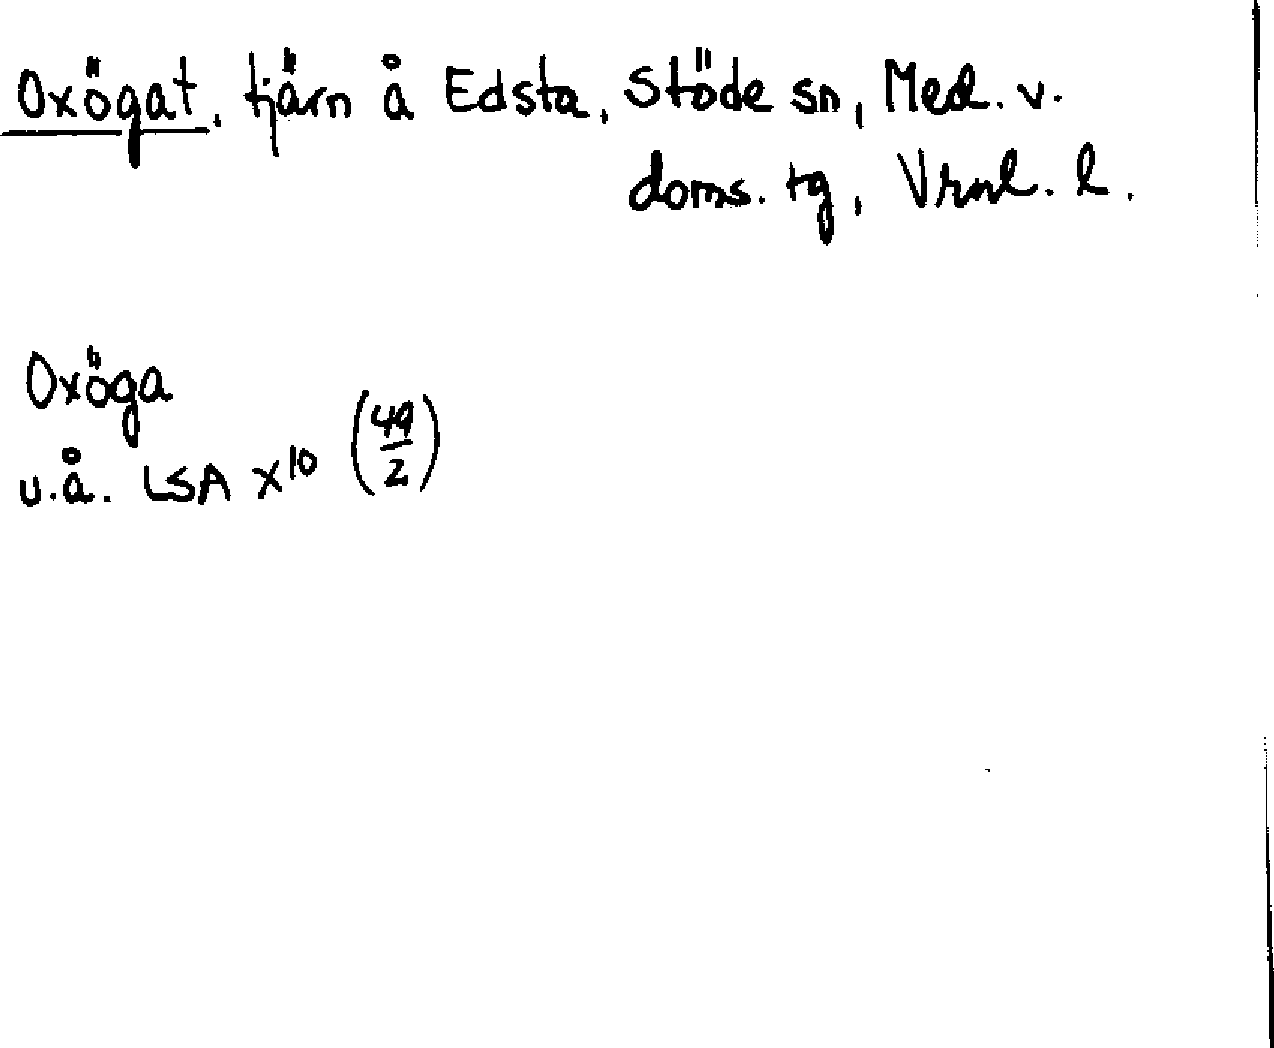 Oxögat, tjärn å Edsta, Stöde sn, Med. v.
doms. tg, Vrnl. l.
Oxöga
u.å. LSA X¹⁰ (49/2)